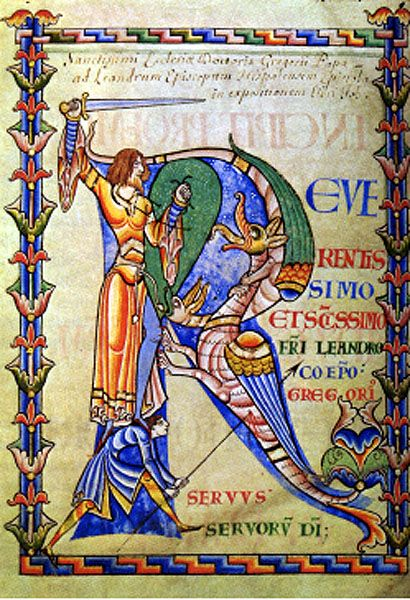 Sanctissimi Ecclesiæ Doctoris Gregorii Papæ
ad Leandrum Episcopum Hispalensem Epistola
in expositionem libri Iob
R EVE
RENTIS
SIMO
ET SC̄TSSIMO
FR̄I LEANDRO
COEP̄O:
GREGORI'
SERVUS
SERVORŪ DĪ;